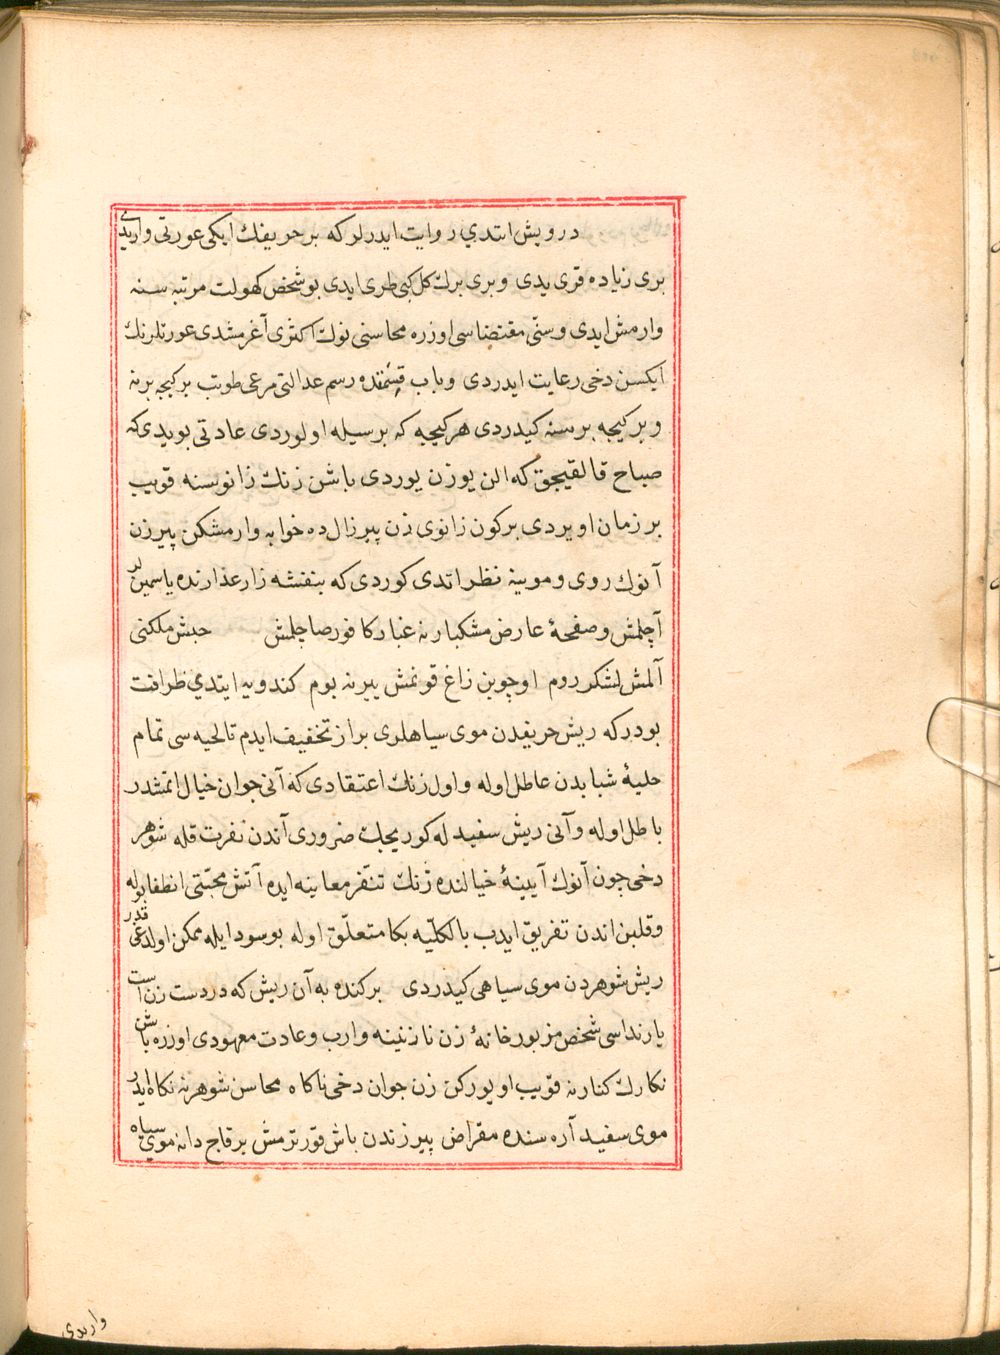 درويش ايتدي روايت ايدرلر كه بر حريفك ايكى عورتى واريدى
برى زياده قرى يدى و برى برك كل كبى طرى ايدى بو شخص كهولت مرتبه سنه
وارمش ايدى و سنّى مقتضاسى اوزره محاسنى نوك اكثرى آغرمشدى عورتلرنك
ايكسن دخى رعايت ايدردى و باب قسمتده رسم عدالتى مرعى طوتب بر كيجه برنه
و بر كيجه برسنه كيدردى هر كيجه كه برسيله اولوردى عادتى بويدى كه
صباح قالقيجق كه الن يوزن يوردى باشن زنك زانوسنه قويب
بر زمان اويردى بر كون زانوى زن پيرزالده خوابه وارمشكن پيرزن
آنوك روى و موينه نظر اتدى كوردى كه بنفشه زار عذارنده ياسمينلر
آچلمش و صفحهٔ عارض مشكبارنه غبار كافور صاچلمش حبش ملكنى
آلمش لشكر روم اوچوبن زاغ قونمش يرنه بوم كندويه ايتدي ظرافت
بودر كه ريش حريفدن موى سياهلرى براز تخفيف ايدم تا لحيه سى تمام
حليهٔ شبابدن عاطل اوله و اول زنك اعتقادى كه آنى جوان خيال اتمشدر
باطل اوله و آنى ريش سفيد له كوريجك ضرورى آندن نفرت قله شوهر
دخى چون آنوك آيينهٔ خيالنده زنك تنفر معاينه ايده آتش محبتى انطفا بوله
و قلبن اندن تفريق ايدب بالكليه بكا متعلّق اوله بو سودايله ممكن اولدغى قدر
ريش شوهردن موى سياهى كيدردى بركنده به آن ريش كه در دست زن است
يارنداسى شخص مزبور خانهٔ زن نازنينه وارب و عادت معهودى اوزره باشن
نكارك كنارنه قويب اويوركن زن جوان دخى ناكاه محاسن شوهرنه نكاه ايدر
موى سفيد آره سنده مقراض پيرزندن باش قورترمش برقاچ دانه موى سياه
واريدى